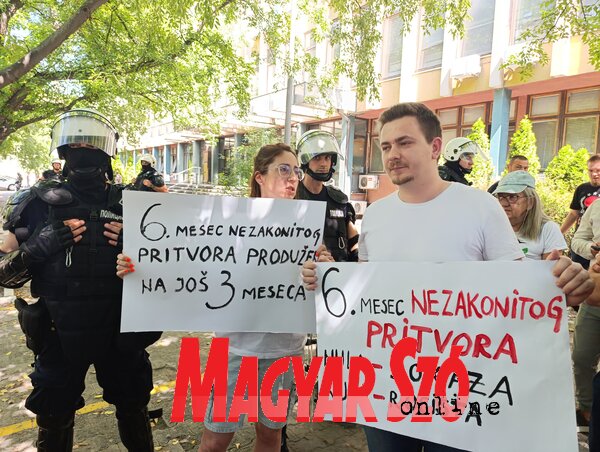 6. MESEC NEZAKONITOG
PRITVORA PRODUŽEN
NA JOŠ 3 MESECA
6. MESEC NEZAKONITOG
PRITVORA
NULA DOKAZA
Magyar Szó
online